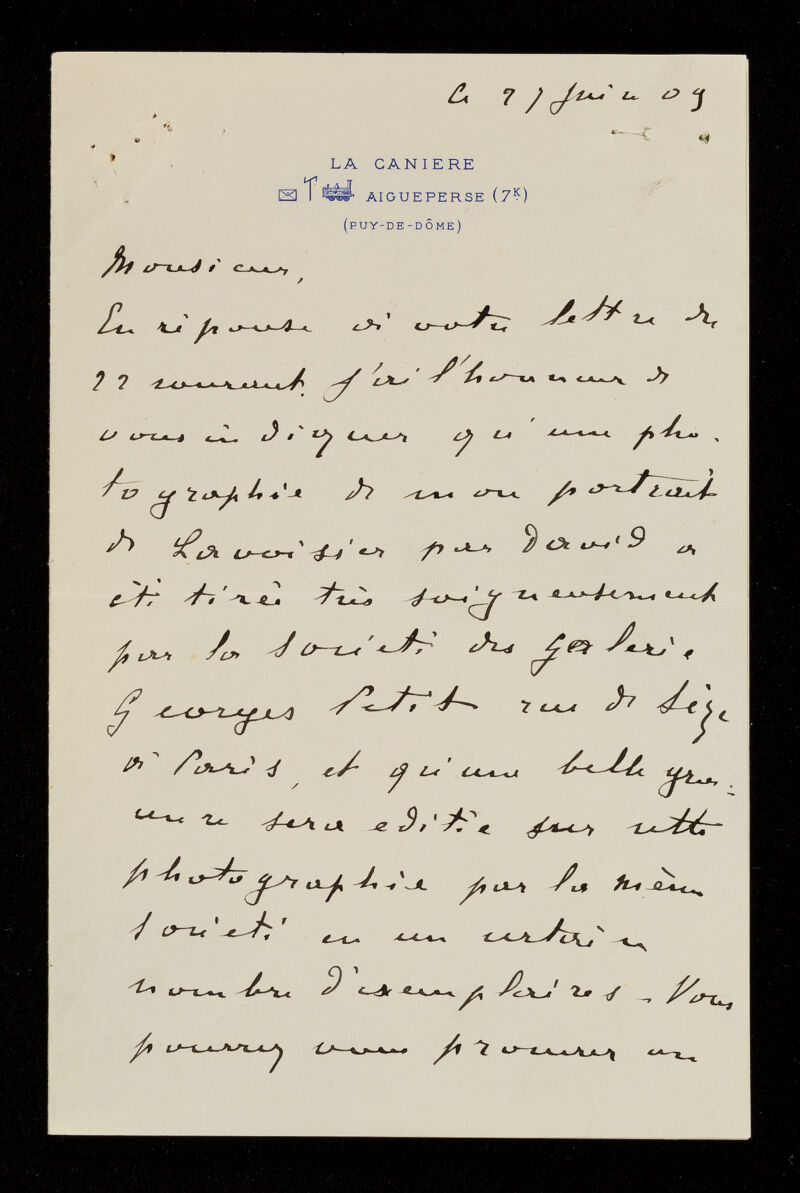 Le 27 Juin 09
LA CANIERE
AIGUEPERSE (7K)
(PUY-DE-DÔME)
Monsieur,
En réponse à votre lettre du
22 courant, j'ai l'honneur de
vous indiquer qu'une pho-
tographie de mon portrait
de Lavoisier par David a
été tirée très soigneusement
par la Société des Galerie
Georges Petit rue de Sèze
à Paris, et qu'une belle gra-
vure sera editée sur cette
photographie par la même
Société en un certain
nombre d'exemplaires - Vous
pourrez vous procurer un